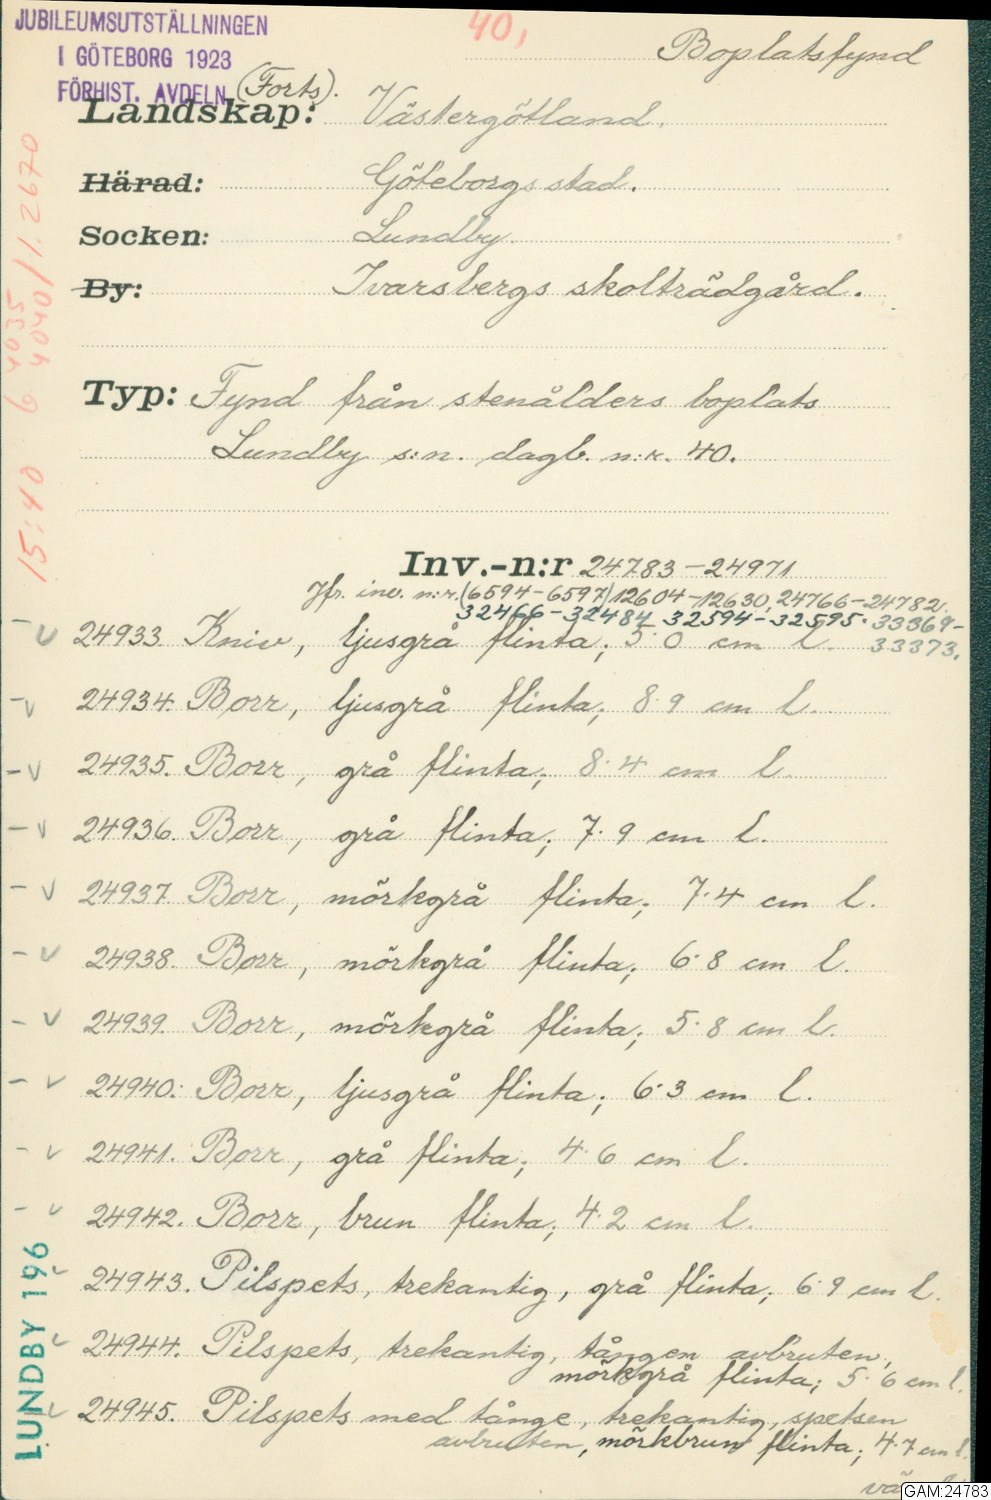 JUBILEUMSUTSTÄLLNINGEN
I GÖTEBORG 1923
FÖRHIST. AVDELN.
40,
Boplatsfynd
(Forts).
Landskap: Västergötland.
Härad: Göteborgs stad.
Socken: Lundby.
By: Ivarsbergs skolträdgård.
Typ: Fynd från stenålders boplats
Lundby s:n. dagb. n:r. 40.
Inv.-n:r 24783-24971
Jfr. inv. n:r. (6594-6597) 12604-12630, 24766-24782.
32466-32484 32594-32595. 33369-
33373.
24933. Kniv, ljusgrå flinta; 5.0 cm l.
24934. Borr, ljusgrå flinta; 8.9 cm l.
24935. Borr, grå flinta; 8.4 cm l.
24936. Borr, grå flinta; 7.9 cm l.
24937. Borr, mörkgrå flinta; 7.4 cm l.
24938. Borr, mörkgrå flinta; 6.8 cm l.
24939. Borr, mörkgrå flinta; 5.8 cm l.
24940. Borr, ljusgrå flinta; 6.3 cm l.
24941. Borr, grå flinta; 4.6 cm l.
24942. Borr, brun flinta; 4.2 cm l.
24943. Pilspets, trekantig, grå flinta; 6.9 cm l.
24944. Pilspets, trekantig, tången avbruten,
mörkgrå flinta; 5.6 cm l.
24945. Pilspets med tånge, trekantig, spetsen
avbruten, mörkbrun flinta; 4.7 cm l.
15:40 6 4035
4040/1.2670
LUNDBY 196
GAM:24783